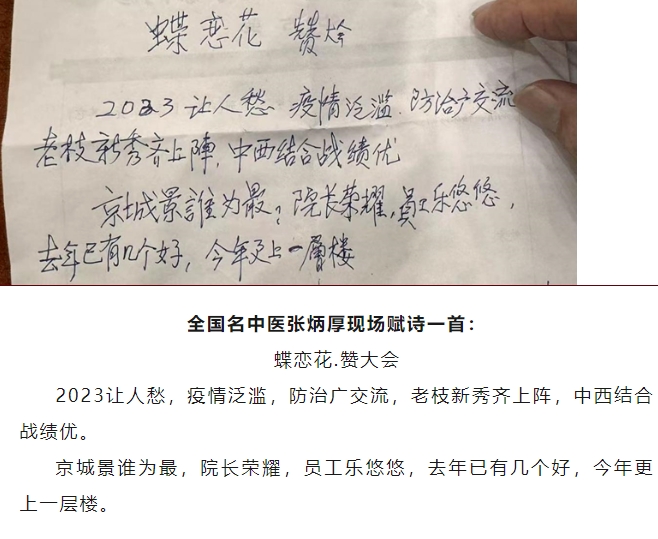 蝶恋花 赞
2023让人愁 疫情泛滥.防治广交流
老枝新秀齐上陣,中西结合战绩优
京城景誰为最?院长荣耀,員工乐悠悠,
去年已有几个好,今年更上一層楼
全国名中医张炳厚现场赋诗一首：
蝶恋花.赞大会
2023让人愁，疫情泛滥，防治广交流，老枝新秀齐上阵，中西结合
战绩优。
京城景谁为最，院长荣耀，员工乐悠悠，去年已有几个好，今年更
上一层楼。